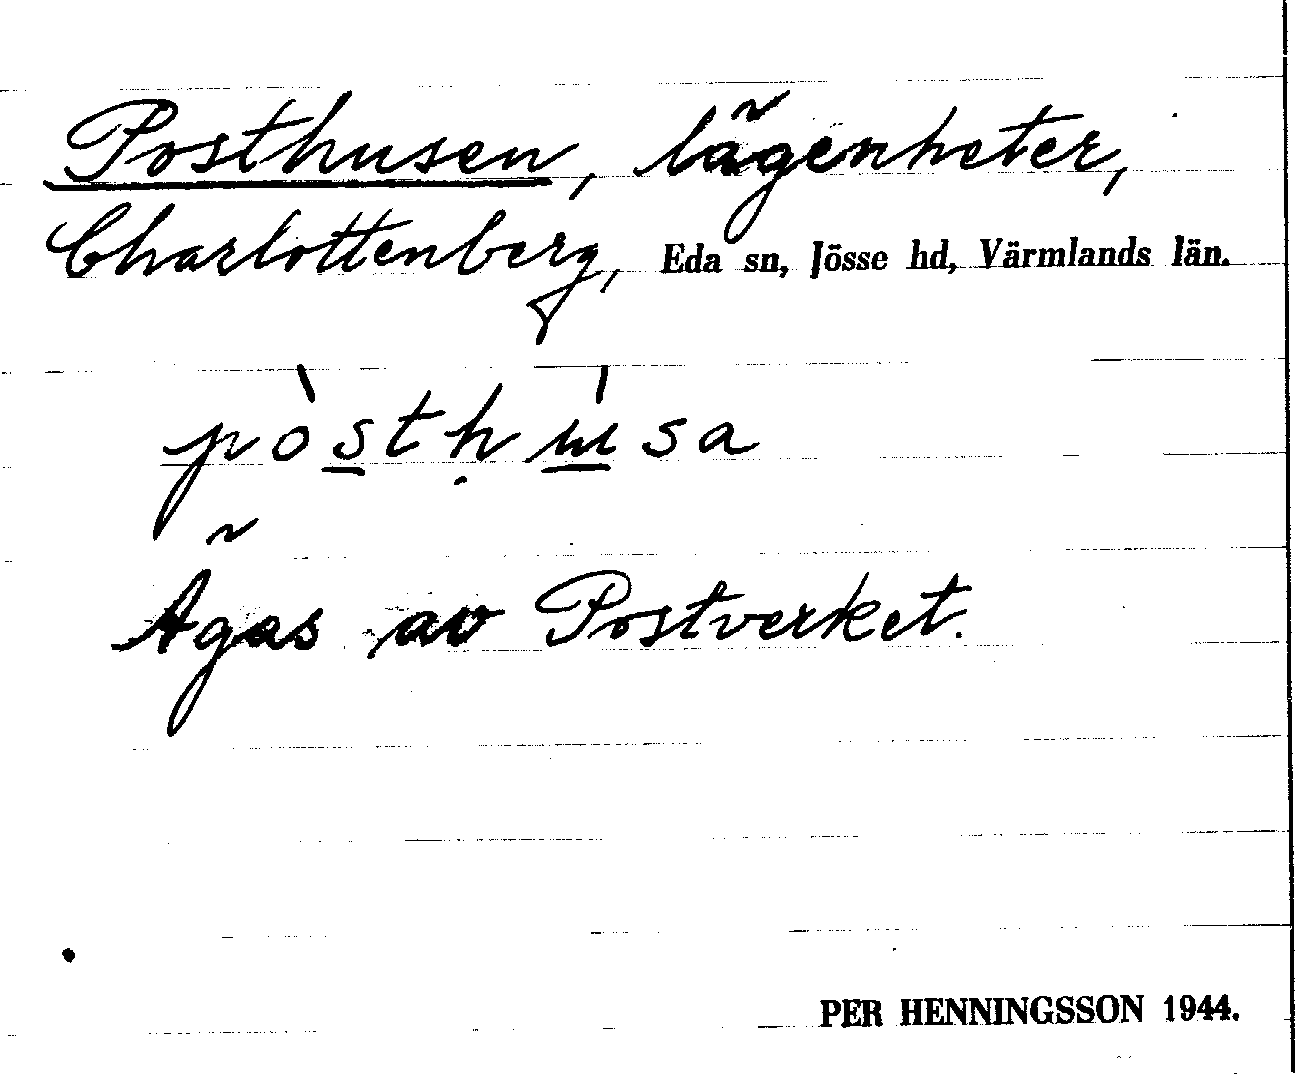 Posthusen, lägenheter,
Charlottenberg, Eda sn, Jösse hd, Värmlands län.
pòstḥɯ́sa
Ägas av Postverket.
PER HENNINGSSON 1944.